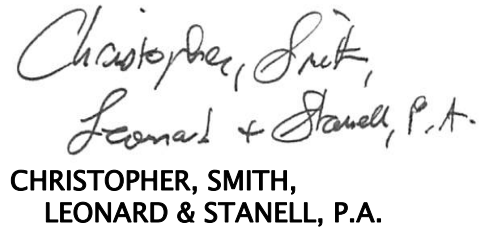 Christopher, Smith,
Leonard + Stanell, P.A.
CHRISTOPHER, SMITH,
LEONARD & STANELL, P.A.